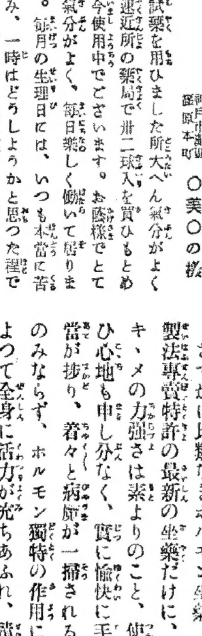 〇美〇の
試藥を用ひました所大へん氣分がよく
速近所の藥局で卅二球入を買ひもとめ
今使用中でございます。お蔭樣でとて
氣分がよく、毎日樂しく働いて居りま
。毎月の生理日には、いつも本當に苦
み、一時はどうしようかと思つた程で
製法專賣特許の最新の坐藥だけに、
キヽメの力強さは素よりのこと、使
ひ心地も申し分なく、實に愉快に手
當が捗り、着々と病竈が一掃される
のみならず、ホルモン獨特の作用に
よつて全身に活力が充ちあふれ、